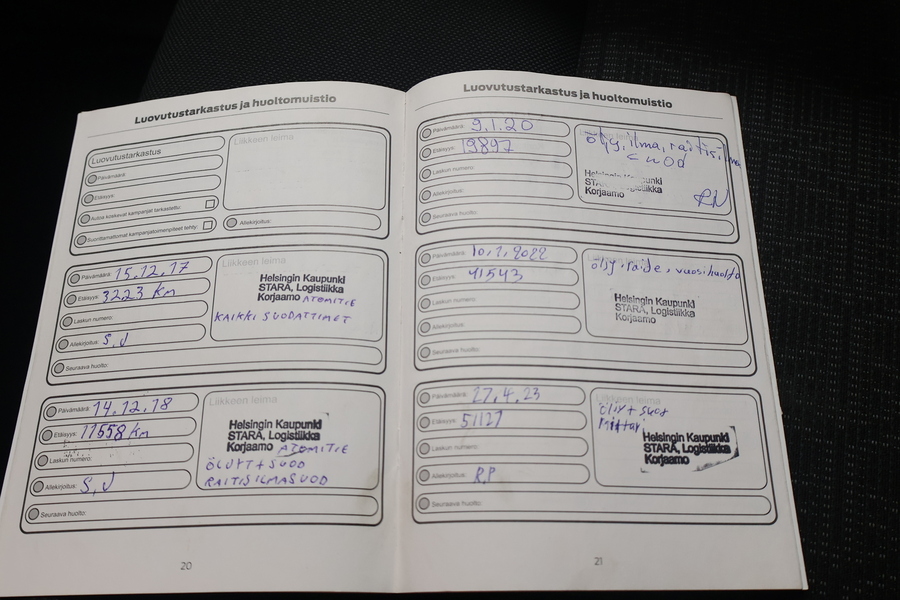 Luovutustarkastus ja huoltomuistio
Luovutustarkastus
Päivämäärä:
Etäisyys:
Autoa koskevat kampanjat tarkastettu:
Suorittamattomat kampanjatoimenpiteet tehty:
Liikkeen leima
Allekirjoitus:
Päivämäärä: 15.12.17
Etäisyys: 3223 Km
Laskun numero:
Allekirjoitus: S.J
Seuraava huolto:
Liikkeen leima
Helsingin Kaupunki
STARA, Logistiikka
Korjaamo ATOMITIE
KAIKKI SUODATTIMET
Päivämäärä: 14.12.18
Etäisyys: 11558 Km
Laskun numero:
Allekirjoitus: S.J
Seuraava huolto:
Liikkeen leima
Helsingin Kaupunki
STARA, Logistiikka
Korjaamo ATOMITIE
ÖLJYT + SUOD
RAITISILMASUOD
20
Luovutustarkastus ja huoltomuistio
Päivämäärä: 9.1.20
Etäisyys: 19897
Laskun numero:
Allekirjoitus:
Seuraava huolto:
öljy, ilma, raitisilma
suod
Helsingin Kaupunki
STARA, Logistiikka
Korjaamo
Päivämäärä: 10.1.2022
Etäisyys: 41543
Laskun numero:
Allekirjoitus:
Seuraava huolto:
Liikkeen leima
öljy, vuosihuolto
Helsingin Kaupunki
STARA, Logistiikka
Korjaamo
Päivämäärä: 27.4.23
Etäisyys: 51127
Laskun numero:
Allekirjoitus: R.P
Seuraava huolto:
Liikkeen leima
Öljy + suod
Helsingin Kaupunki
STARA, Logistiikka
Korjaamo
21